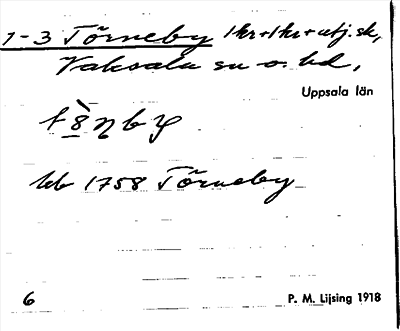 1-3 Törneby 1 kr + 1 kr + utj. sk,
Vaksala sn o. hd,
Uppsala län
1758 Törneby
6 P. M. Lijsing 1918